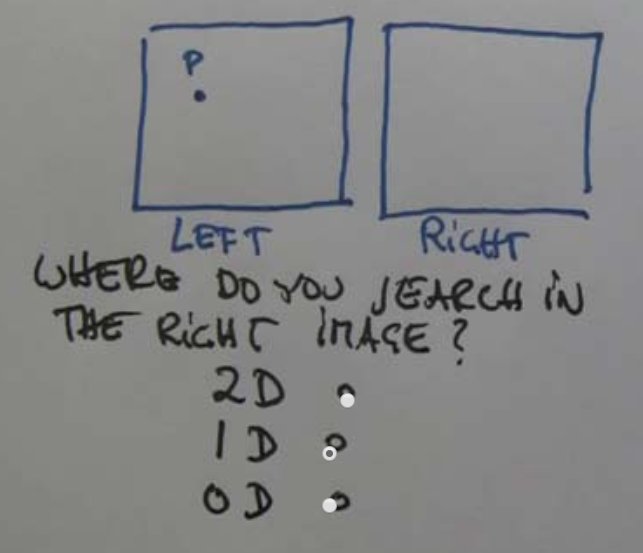 P
LEFT RIGHT
WHERE DO YOU SEARCH IN
THE RIGHT IMAGE?
2D
1D
0D